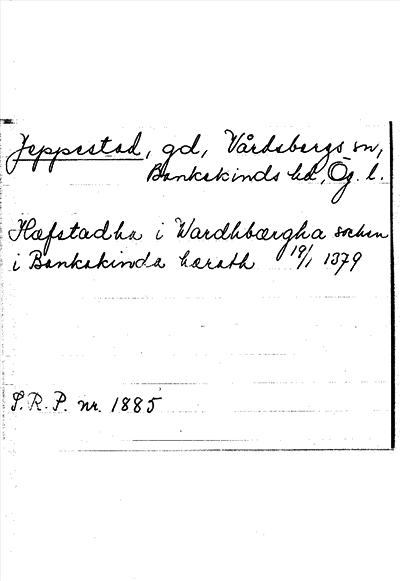 Jeppestad, gd, Vårdsbergs sn,
Bankekinds hd, Ög. l.
Hæfstadha i Wardhbærgha sochn
i Bankakinda hærath 19/1 1379
S.R.P. nr. 1885